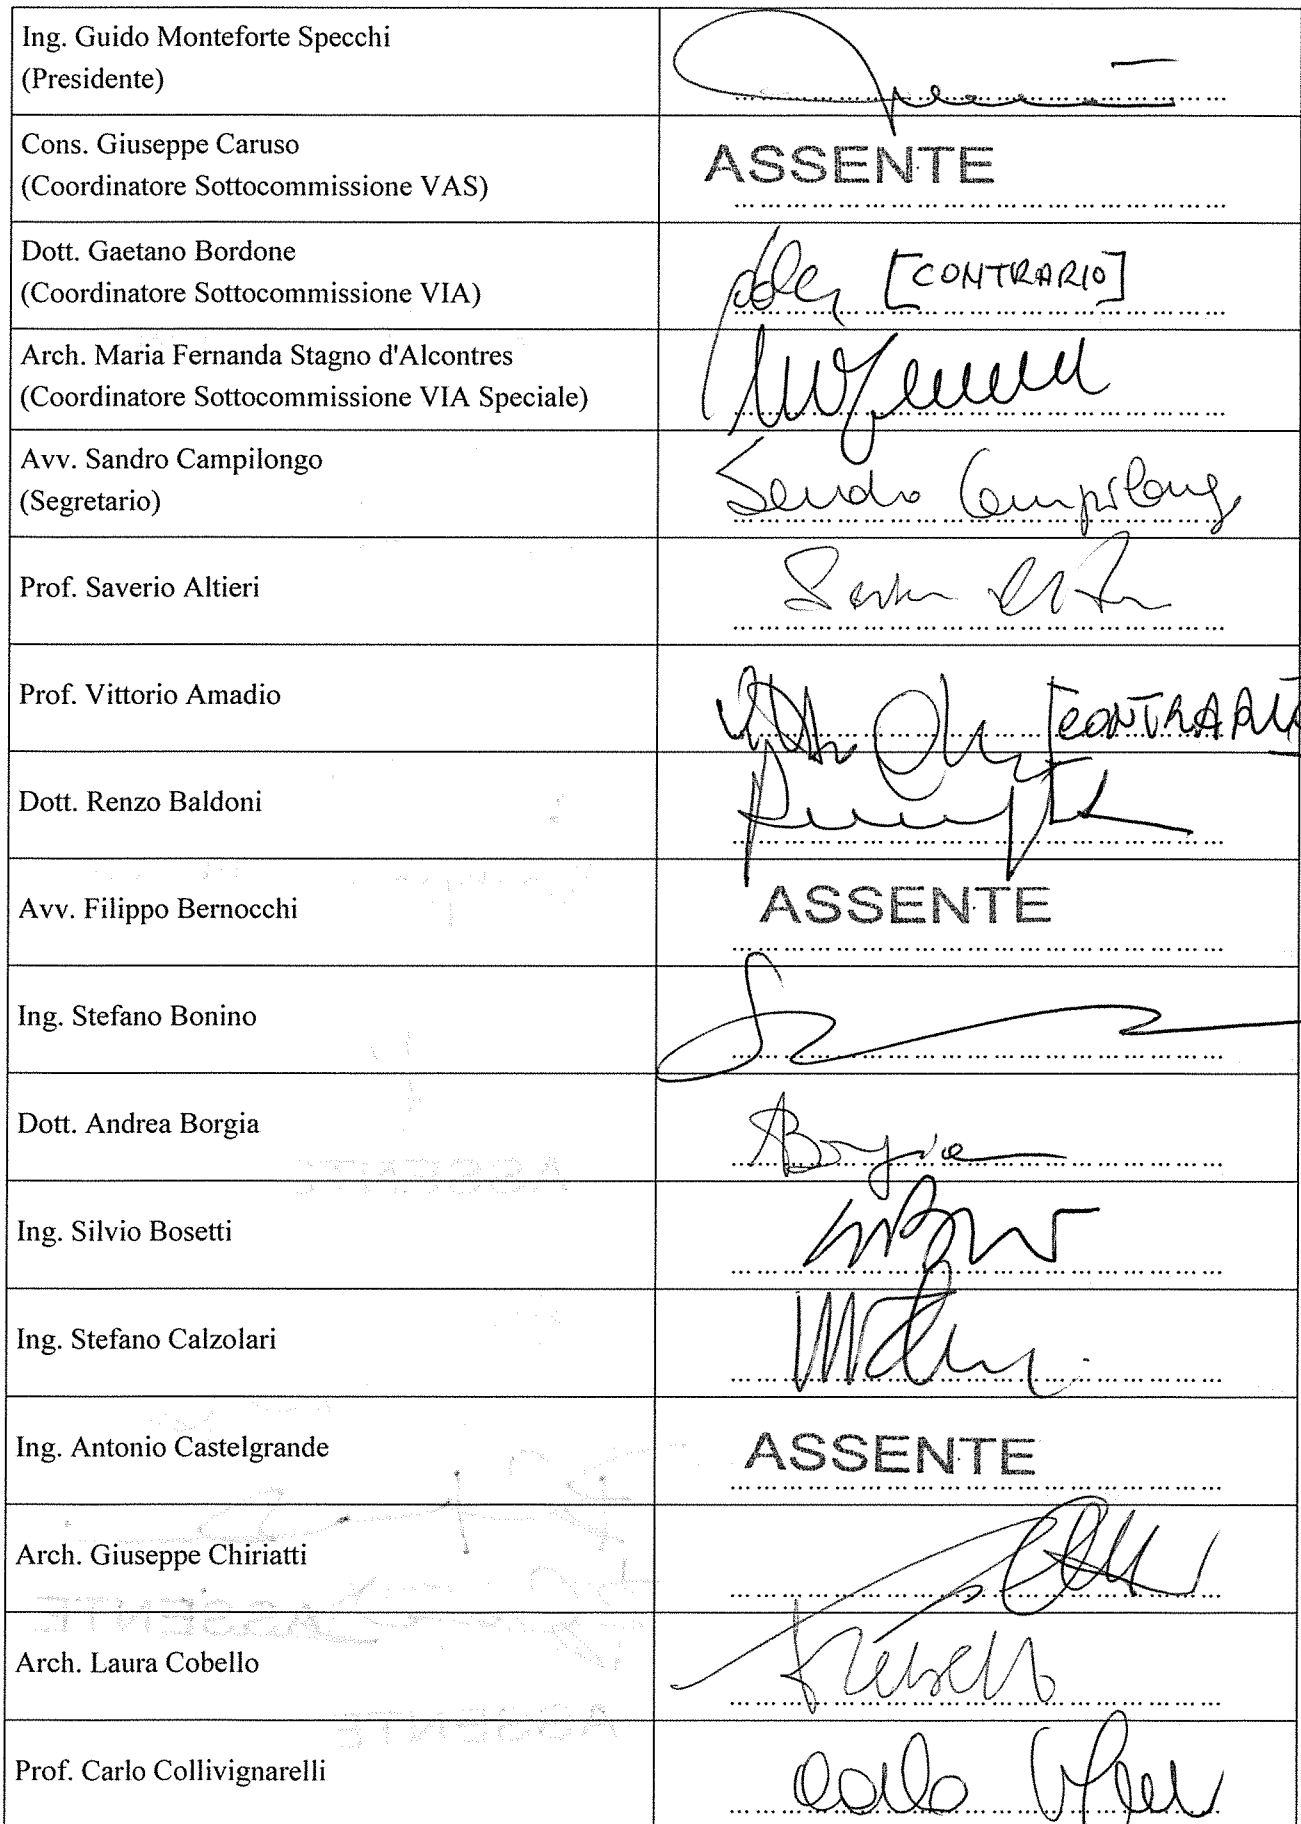 Ing. Guido Monteforte Specchi
(Presidente)
Cons. Giuseppe Caruso
(Coordinatore Sottocommissione VAS)
ASSENTE
Dott. Gaetano Bordone
(Coordinatore Sottocommissione VIA)
[CONTRARIO]
Arch. Maria Fernanda Stagno d'Alcontres
(Coordinatore Sottocommissione VIA Speciale)
Avv. Sandro Campilongo
(Segretario)
Sandro Campilongo
Prof. Saverio Altieri
Prof. Vittorio Amadio
Dott. Renzo Baldoni
Avv. Filippo Bernocchi
ASSENTE
Ing. Stefano Bonino
Dott. Andrea Borgia
ABorgia
Ing. Silvio Bosetti
Ing. Stefano Calzolari
Ing. Antonio Castelgrande
ASSENTE
Arch. Giuseppe Chiriatti
Arch. Laura Cobello
Prof. Carlo Collivignarelli
Carlo